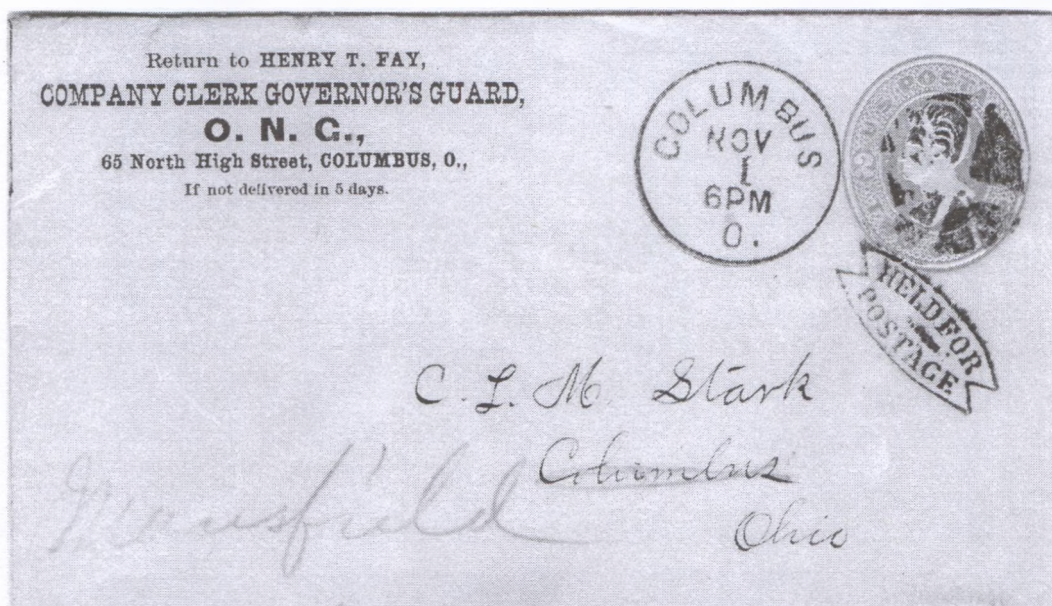 Return to HENRY T. FAY,
COMPANY CLERK GOVERNOR'S GUARD,
O. N. G.,
65 North High Street, COLUMBUS, O.,
If not delivered in 5 days.
COLUMBUS
NOV
1
6PM
O.
U.S. POSTA
HELD FOR
POSTAGE
C. L. M. Stark
Columbus
Ohio
Mansfield